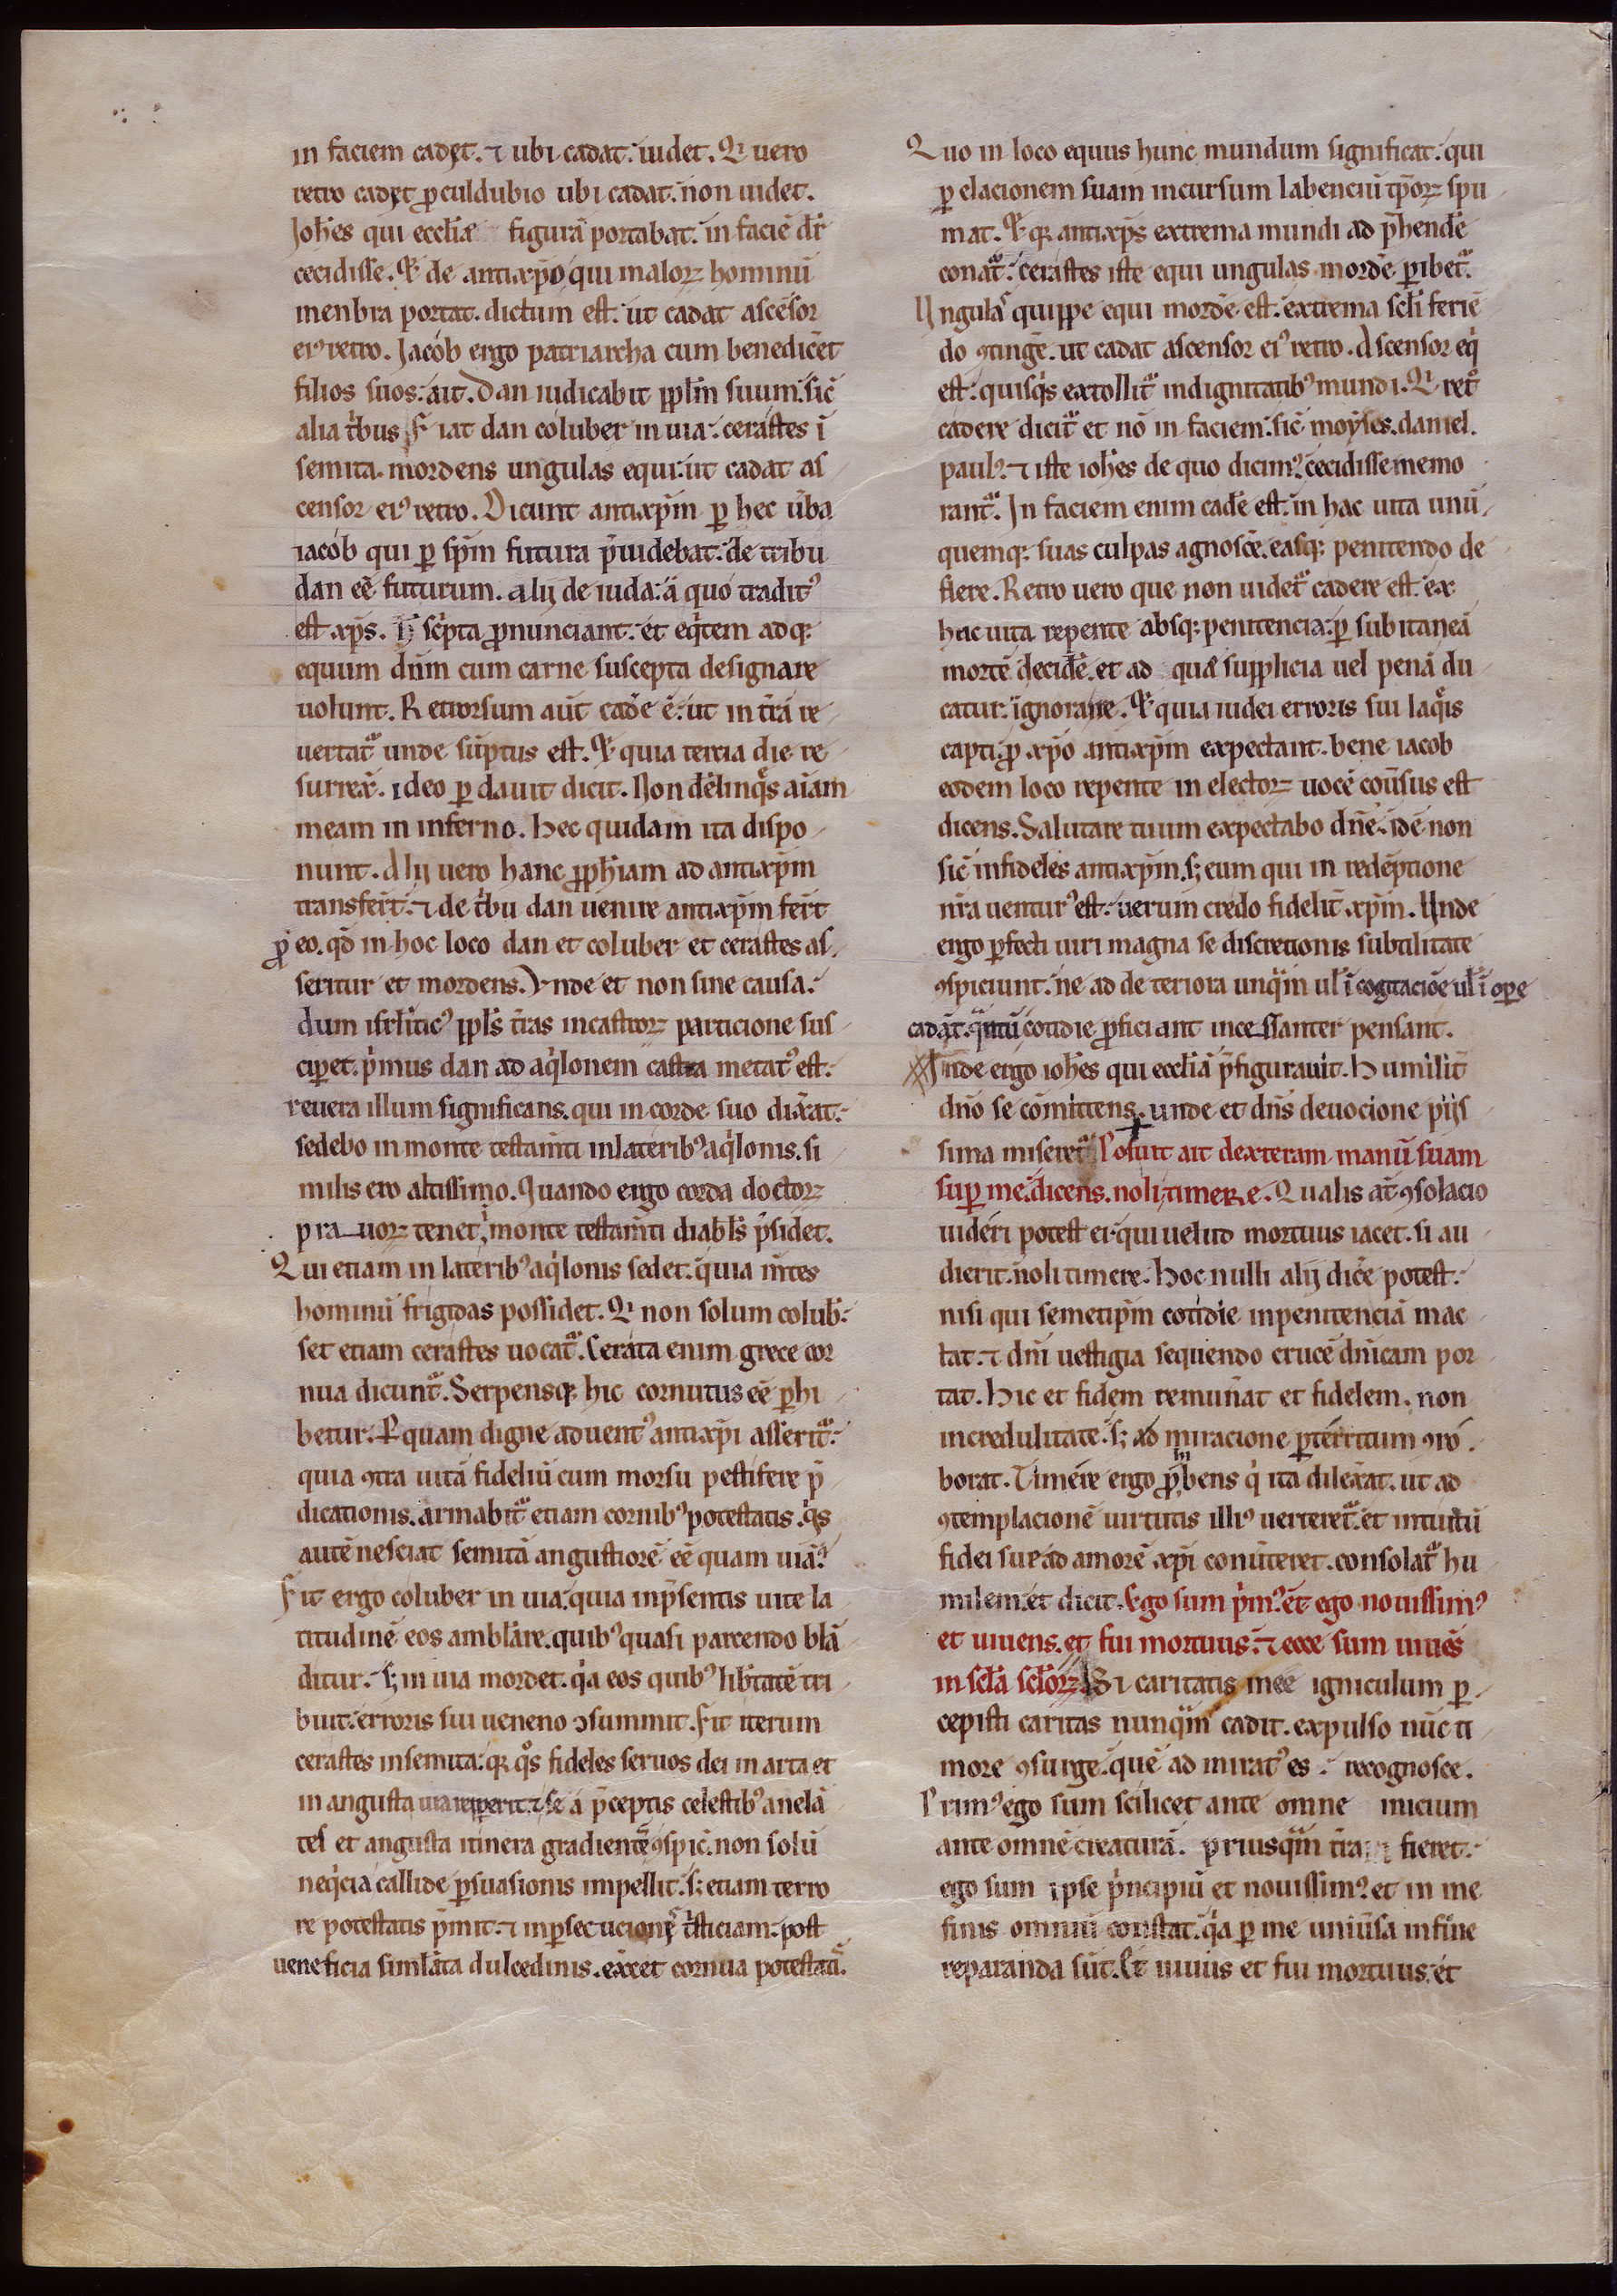 in faciem cadęt. ⁊ ubi cadat: uidet. Qi uero
retro cadęt ꝓculdubio ubi cadat. non uidet.
Joh̅es qui ecclie̅ figurā portabat. in faciē dr̄
cecidisse. Et de antixp̄o qui maloꝝ hominū
menbra portat. dictum est: ut cadat ascēsor
eiꝰ retro. Jacob ergo patriarcha cum benedicēt
filios suos: ait. Dan iudicabit ppl̄m suum: sic̄
alia t̄bus fiat dan coluber in uia: cerastes ī
semita. mordens ungulas equi: ut cadat as
censor eiꝰ retro. Dicunt antixp̄m ꝑ hec ūba
iacob qui ꝑ sp̄m futura p̄uidebat: de tribu
dan eē futurum. alij de iuda: a quo traditꝰ
est xp̄s. h̄ sc̄pta ꝓnunciant. et eq̇tem adqꝫ
equum dn̄m cum carne suscepta designare
uolunt. Retrorsum aūt cad̄e ē: ut in t̄rā re
uertat᷑ unde sūptus est. Et quia tercia die re
surrex̄. ideo ꝑ dauit dicit. Non delinq̄s aīam
meam in inferno. hec quidam ita dispo
nunt. Alij uero hanc ꝓph̄iam ad antixp̄m
transfer̄t. ⁊ de t̄bu dan uenire antixp̄m fer̄t
ꝓ eo. qd̄ in hoc loco dan et coluber et cerastes as
seritur et mordens. Vnde et non sine causa:
dum isrl̄iticꝰ ppl̄s t̄ras incastroꝝ particione sus
ciꝑet. p̄mus dan ad aq̇lonem castra metatꝰ est:
reuera illum significans. qui in corde suo dix̄at:
sedebo in monte testam̄ti inlateribꝰ aq̇lonis. si
milis ero altissimo. Quando ergo corda doctoꝝ
prauoꝝ tenet, ī monte testam̄ti diabl̄s p̄sidet.
Qui etiam in lateribꝰ aq̇lonis sedet. quia m̄tes
hominū frigidas possidet. Qi non solum colub̄:
set etiam cerastes uocat᷑. Cerata enim grece cor
nua dicunt᷑. Serpensqꝫ hic cornutus eē ꝑhi
betur. Per quam digne aduentꝰ antixp̄i asserit᷑:
quia ꝯtra uitā fideliū cum morsu pestifere p̄
dicationis. armabit᷑ etiam cornibꝰ potestatis. q̇s
autē nesciat semitā angustiorē eē quam uiā?
Fit ergo coluber in uia: quia inp̄sentis uite la
titudinē eos amblāre. quibꝰ quasi parcendo blā
ditur: sꝫ in uia mordet. q̇a eos quibꝰ lib̄tatē tri
buit: erroris sui ueneno ꝯsummit. Fit iterum
cerastes insemita: qꝫ q̊s fideles seruos dei in arta et
in angusta uia repperit. ⁊ se a p̄ceptis celestibꝰ anelā
tes et angusta itinera gradientē ꝯspic̄. non solū
neq̇cia callide ꝑsuasionis impellit. sꝫ etiam terro
re potestatis p̄mit. ⁊ inꝑsecucione t̄sticiam: post
ueneficia simlāta dulcedinis. ex̄cet cornua potestatis̄.
Quo in loco equus hunc mundum significat. qui
ꝑ elacionem suam incursum labenciū tp̄oꝝ spu
mat. Et qꝫ antixp̄s extrema mundi ad p̄hend̄e
conat᷑: cerastes iste equi ungulas mord̄e ꝑibet᷑.
Ungulas quippe equi mord̄e est. extrema scl̄i feriē
do ꝯtinḡe. ut cadat ascensor eiꝰ retro. Ascensor eq̇
est: quisq̇s extollit᷑ indignitatibꝰ mundi. Qi ret̊
cadere dicit᷑ et nō in faciem: sic̄ moyses. daniel.
paulꝰ. ⁊ iste ioh̅es de quo dicimꝰ. cecidisse memo
rant᷑. In faciem enim cad̄e est. in hac uita unū
quemqꝫ suas culpas agnosc̄e. easqꝫ penitendo de
flere. Retro uero que non uidet᷑ cadere est. ex
hac uita repente absqꝫ penitencia: ꝑ subitaneā
mortē decid̄e. et ad que supplicia uel penā du
catur. ignorare. Et quia iudei erroris sui laq̄is
capti ꝓ xp̄o antixp̄m expectant. bene iacob
eodem loco repente in electoꝝ uocē cōūsus est
dicens. Salutare tuum expectabo dn̄e: idē non
sic̄ infideles antixp̄m. sꝫ eum qui in redēptione
nr̄a uenturꝰ est: uerum credo fidelit̄ xp̄m. Unde
ergo ꝑfecti uiri magna se discretionis subtilitate
ꝯspiciunt. ne ad deteriora unq̄m ul̄ ī cogitaciōe ul̄ ī oꝑe
cadāt. q̄ntū cotidie ꝓficiant incessanter pensant.
Inde ergo ioh̅es qui eccl̄iā p̄figurauit. humilit̄
dn̄o se cōmittens. unde et dn̄s deuocione pijs
sima miseret᷑ Posuit ait dexteram manū suam
suꝑ me: dicens. noli timere. Qualis at̄ ꝯsolacio
uideri potest ei qui uelud mortuus iacet. si au
dierit. noli timere. Hoc nulli alij dic̄e potest:
nisi qui semetip̄m cotidie inpenitenciā mac
tat. ⁊ dn̄i uestigia sequendo crucē dn̄icam por
tat. Hic et fidem remun̄at et fidelem. non
incredulitate: sꝫ admiracione ꝑterritum ꝯro
borat. Timere ergo ꝓhibens q̇ ita dilex̄at. ut ad
ꝯtemplacionē uirtutis illiꝰ uerteret᷑. et intuitū
fidei sue ad amorē xp̄i conūteret. consolat᷑ hu
milem. et dicit. Ego sum p̄mꝰ. et ego nouissimꝰ
et uiuens. et fui mortuus. ⁊ ecce sum uiuēs
in scl̄a scl̄oꝝ Si caritatis mee igniculum ꝑ
cepisti caritas nunq̄m cadit. expulso nūc ti
more ꝯsurge. quē ad miratꝰ es: recognosce.
Primꝰ ego sum scilicet ante omne inicium
ante omnē creaturā. priusq̄m t̄ra fieret:
ego sum ipse p̄ncipiū et nouissimꝰ. et in me
finis omniū constat. q̇a ꝑ me uniūsa in fine
reparanda sūt. Et uiuus et fui mortuus. et